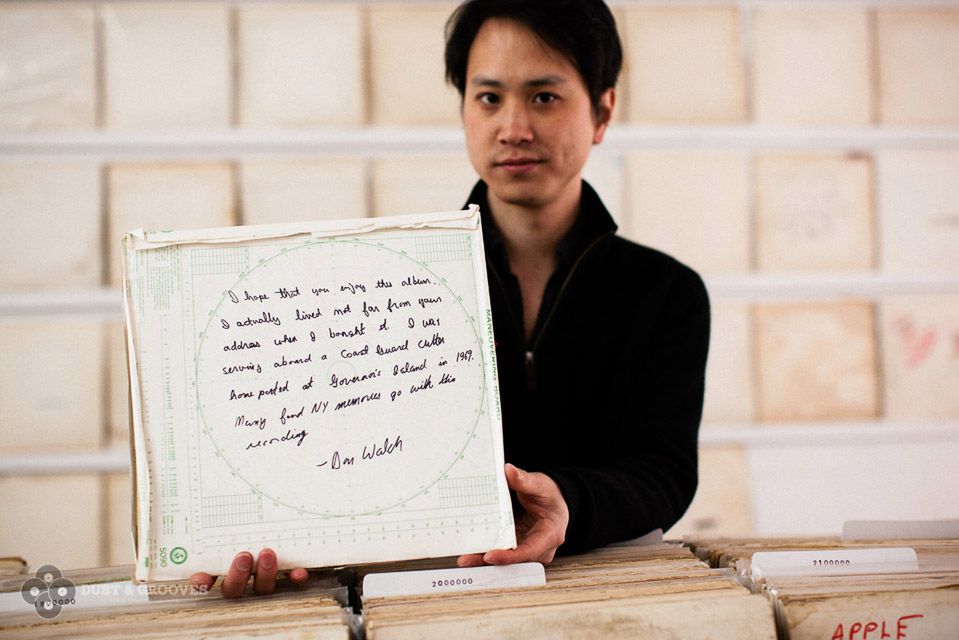 I hope that you enjoy this album.
I actually lived not far from your
address when I bought it. I was
serving aboard a Coast Guard Cutter
home ported at Governor's Island in 1969.
Many fond NY memories go with this
recording
- Don Walch
MANEUVERING BOARD
5090
1900000
DUST & GROOVES
2000000
2100000
APPLE